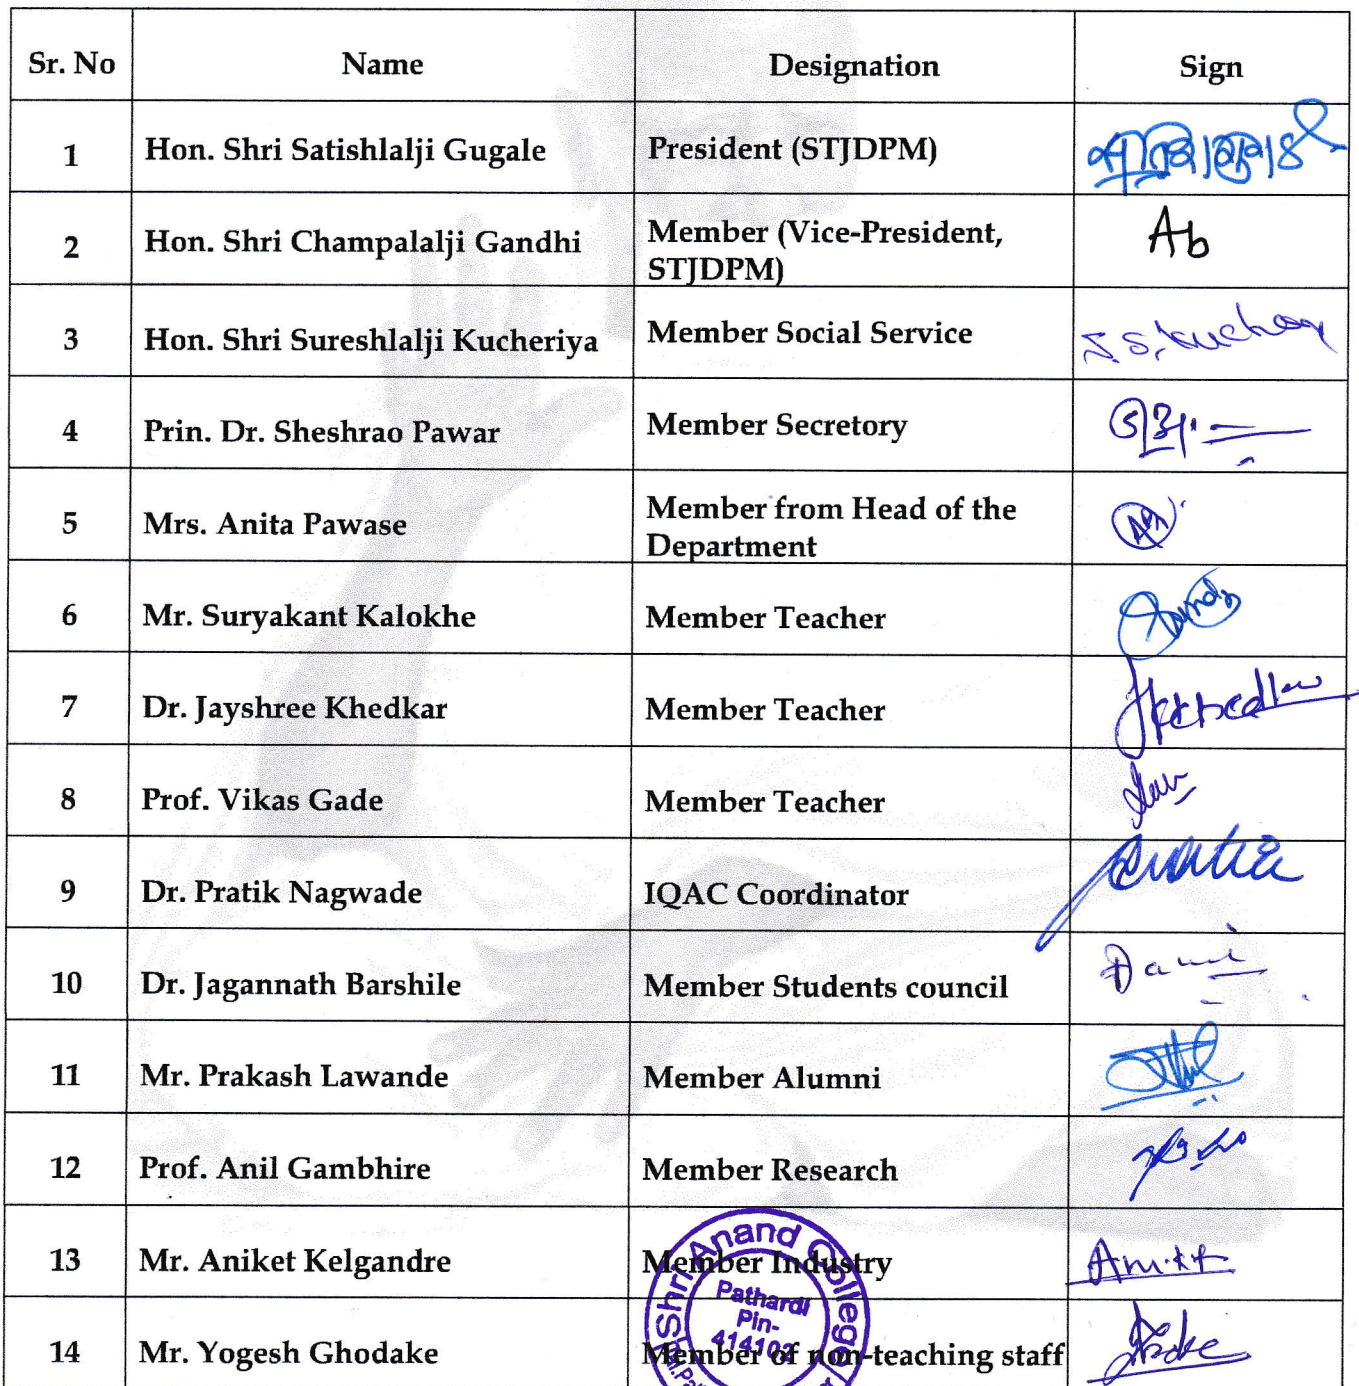 Sr. No Name Designation Sign
1 Hon. Shri Satishlalji Gugale President (STJDPM)
2 Hon. Shri Champalalji Gandhi Member (Vice-President,
STJDPM) Ab
3 Hon. Shri Sureshlalji Kucheriya Member Social Service
4 Prin. Dr. Sheshrao Pawar Member Secretory
5 Mrs. Anita Pawase Member from Head of the
Department
6 Mr. Suryakant Kalokhe Member Teacher
7 Dr. Jayshree Khedkar Member Teacher
8 Prof. Vikas Gade Member Teacher
9 Dr. Pratik Nagwade IQAC Coordinator
10 Dr. Jagannath Barshile Member Students council
11 Mr. Prakash Lawande Member Alumni
12 Prof. Anil Gambhire Member Research
13 Mr. Aniket Kelgandre Member Industry
14 Mr. Yogesh Ghodake Member of non-teaching staff
Shri Anand College
Pathardi
Pin-
414102